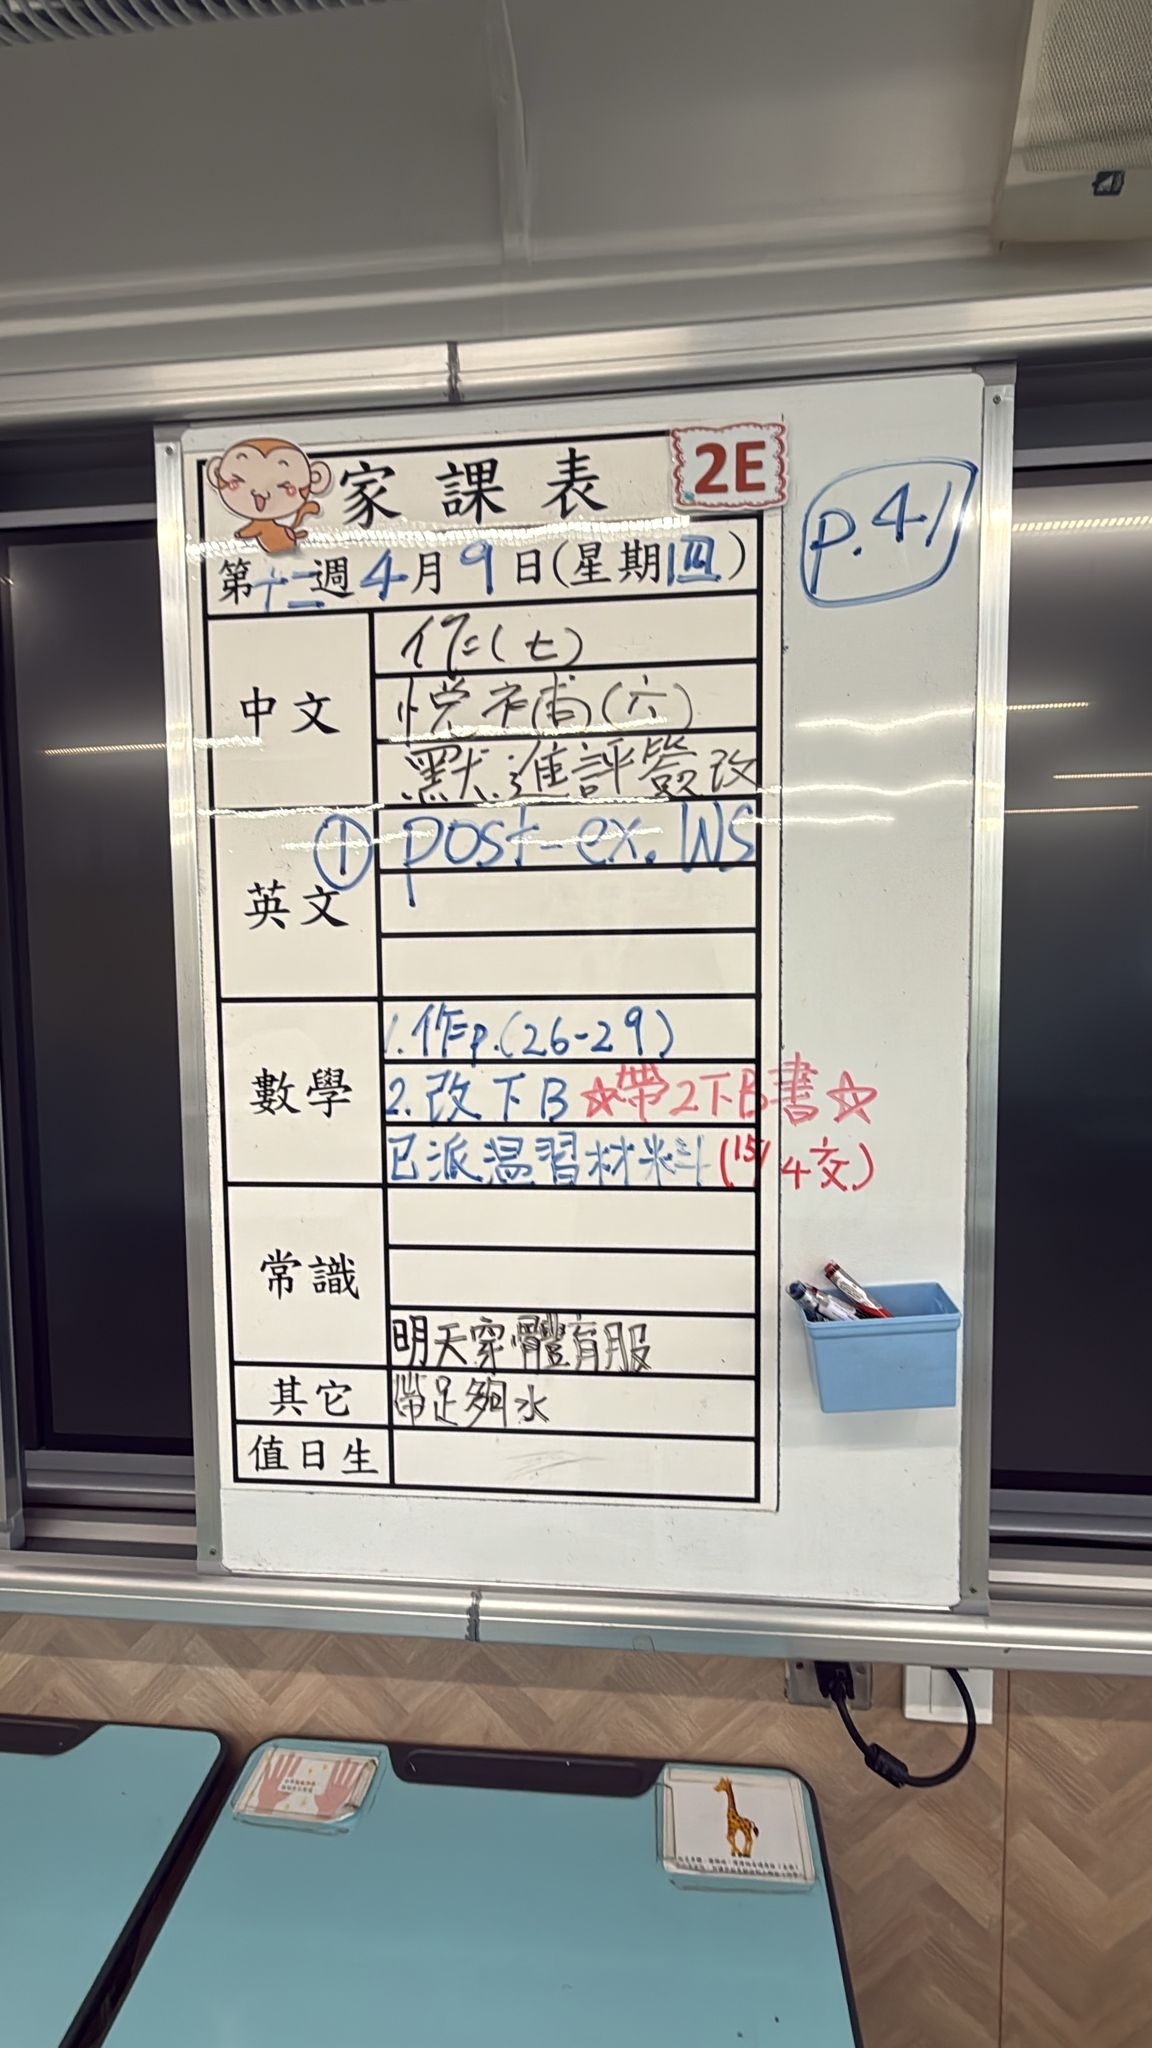 家課表
2E
p.41
第十二週4月9日(星期四)
中文
作(七)
悅補(六)
默進評簽改
英文
① post-ex. WS
數學
1.作p.(26-29)
2.改下B ☆帶2下B書☆
已派温習材料(15/4交)
常識
明天穿體育服
其它
帶足夠水
值日生